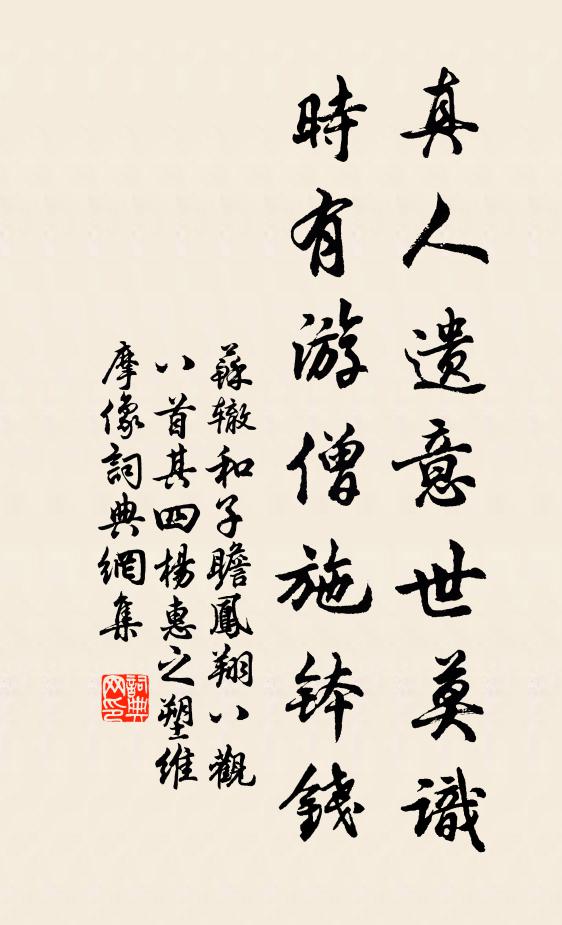 真人遺意世莫識
時有游僧施鉢錢
蘇轍和子瞻鳳翔八觀
八首其四楊惠之塑維
摩像詞典網集
詞典
网印